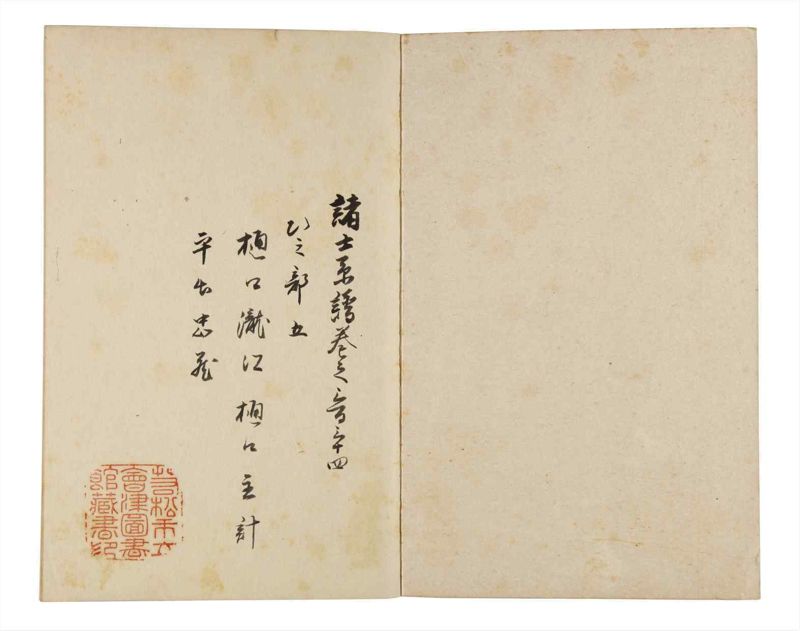 諸士系譜巻之
ひ之部 五
樋口瀧江 樋口主計
平出忠蔵
若松市立
會津圖書
館藏書印